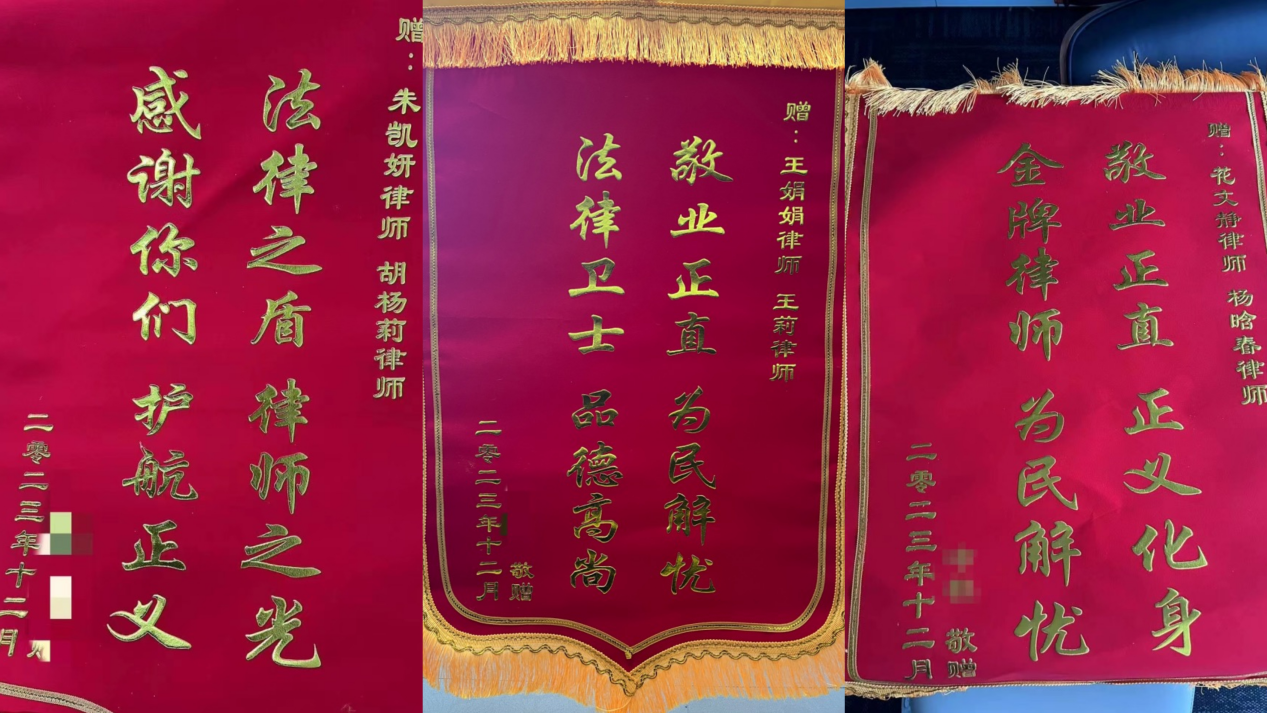 赠：朱凯妍律师 胡杨莉律师
法律之盾 律师之光
感谢你们 护航正义
二零二三年十二月
赠：王娟娟律师 王莉律师
敬业正直 为民解忧
法律卫士 品德高尚
敬赠
二零二三年十二月
赠：花文静律师 杨晗春律师
敬业正直 正义化身
金牌律师 为民解忧
敬赠
二零二三年十二月